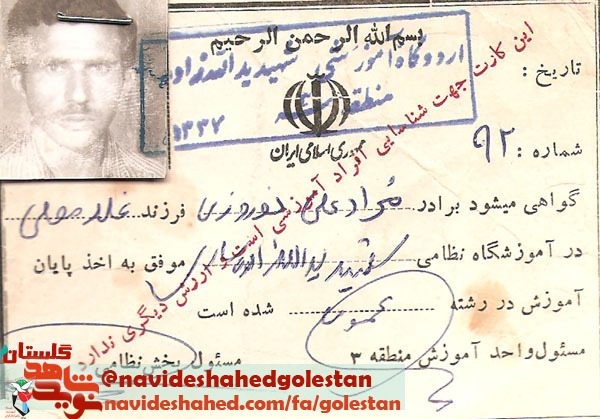 بسم الله الرحمن الرحیم
اردوگاه آموزشی شهید یدالله زاد
منطقه
۱۳۳۷
جمهوری اسلامی ایران
تاریخ :
شماره : ۹۲
این کارت جهت شناسایی افراد آموزشی است و ارزش دیگری ندارد
گواهی میشود برادر مرادعلی نوروزی فرزند غلامعلی
در آموزشگاه نظامی شهید یدالله موفق به اخذ پایان
آموزش در رشته عمومی شده است
مسئول واحد آموزش منطقه ۳ مسئول بخش نظامی
نوید شاهد گلستان
@navideshahedgolestan
navideshahed.com/fa/golestan